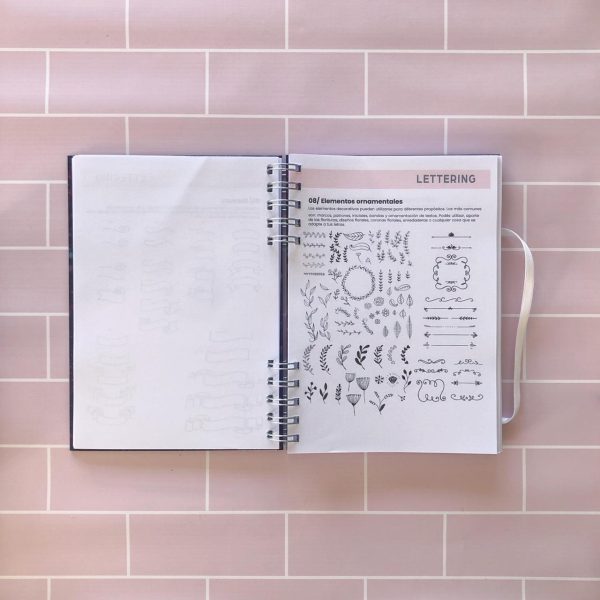 LETTERING
08/ Elementos ornamentales
Los elementos decorativos pueden utilizarse para diferentes propósitos. Los más comunes
son: marcos, patrones, iniciales, bandas y ornamentación de textos. Podés utilizar, aparte
de los florituras, diseños florales, coronas florales, enredaderas o cualquier cosa que se
adapte a tus letras.